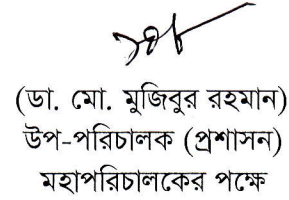 (ডা. মো. মুজিবুর রহমান)
উপ-পরিচালক (প্রশাসন)
মহাপরিচালকের পক্ষে